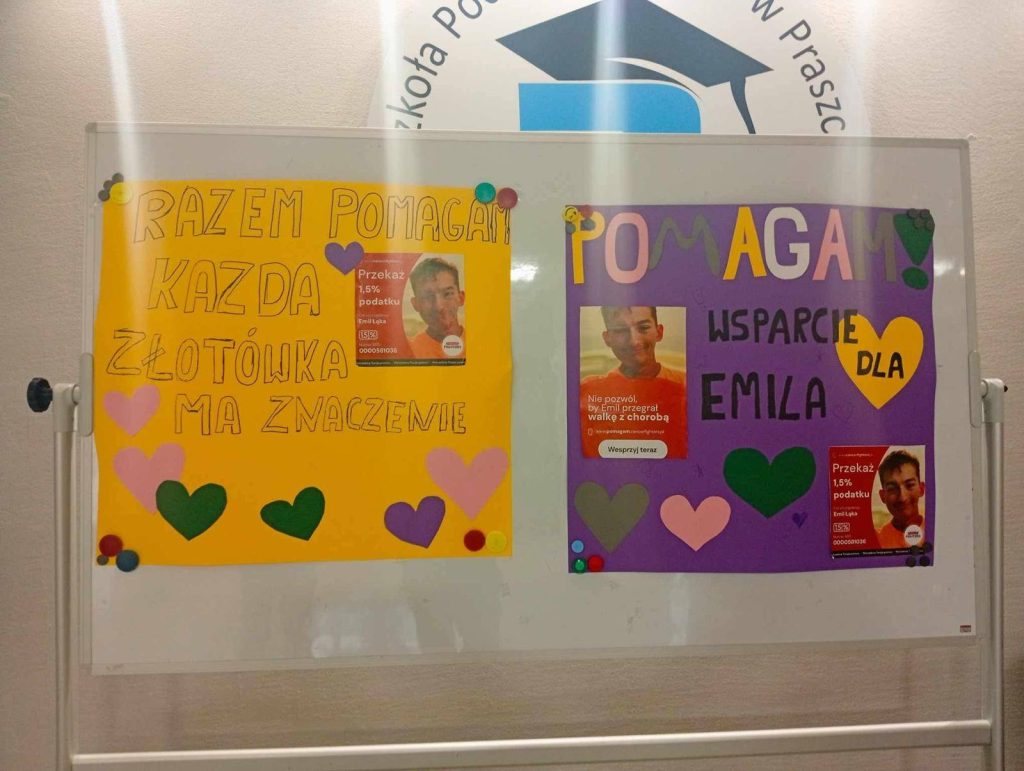 Szkoła Po
w Praszc
RAZEM POMAGAM
KAZDA
ZŁOTÓWKA
MA ZNACZENIE
Przekaż
1,5%
podatku
Emil Łąka
1,5%
Numer KRS:
0000581036
POMAGAM!
WSPARCIE
DLA
EMILA
Nie pozwól,
by Emil przegrał
walkę z chorobą
www.pomagam.cancerfighters.pl
Wesprzyj teraz
Przekaż
1,5%
podatku
Emil Łąka
1,5%
Numer KRS:
0000581036